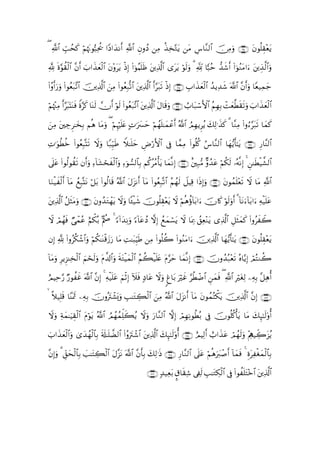 يَعْقِلُونَ ﴿١٦٤﴾ وَمِنَ ٱلنَّاسِ مَن يَتَّخِذُ مِن دُونِ ٱللَّهِ أَندَادًا يُحِبُّونَهُمْ كَحُبِّ ٱللَّهِ ۖ
وَٱلَّذِينَ ءَامَنُوٓا۟ أَشَدُّ حُبًّا لِّلَّهِ ۗ وَلَوْ يَرَى ٱلَّذِينَ ظَلَمُوٓا۟ إِذْ يَرَوْنَ ٱلْعَذَابَ أَنَّ ٱلْقُوَّةَ لِلَّهِ
جَمِيعًا وَأَنَّ ٱللَّهَ شَدِيدُ ٱلْعَذَابِ ﴿١٦٥﴾ إِذْ تَبَرَّأَ ٱلَّذِينَ ٱتُّبِعُوا۟ مِنَ ٱلَّذِينَ ٱتَّبَعُوا۟ وَرَأَوُا۟
ٱلْعَذَابَ وَتَقَطَّعَتْ بِهِمُ ٱلْأَسْبَابُ ﴿١٦٦﴾ وَقَالَ ٱلَّذِينَ ٱتَّبَعُوا۟ لَوْ أَنَّ لَنَا كَرَّةً فَنَتَبَرَّأَ مِنْهُمْ
كَمَا تَبَرَّءُوا۟ مِنَّا ۗ كَذَٰلِكَ يُرِيهِمُ ٱللَّهُ أَعْمَٰلَهُمْ حَسَرَٰتٍ عَلَيْهِمْ ۖ وَمَا هُم بِخَٰرِجِينَ مِنَ
ٱلنَّارِ ﴿١٦٧﴾ يَٰٓأَيُّهَا ٱلنَّاسُ كُلُوا۟ مِمَّا فِى ٱلْأَرْضِ حَلَٰلًا طَيِّبًا وَلَا تَتَّبِعُوا۟ خُطُوَٰتِ
ٱلشَّيْطَٰنِ ۚ إِنَّهُۥ لَكُمْ عَدُوٌّ مُّبِينٌ ﴿١٦٨﴾ إِنَّمَا يَأْمُرُكُم بِٱلسُّوٓءِ وَٱلْفَحْشَآءِ وَأَن تَقُولُوا۟ عَلَى
ٱللَّهِ مَا لَا تَعْلَمُونَ ﴿١٦٩﴾ وَإِذَا قِيلَ لَهُمُ ٱتَّبِعُوا۟ مَآ أَنزَلَ ٱللَّهُ قَالُوا۟ بَلْ نَتَّبِعُ مَآ أَلْفَيْنَا
عَلَيْهِ ءَابَآءَنَآ ۗ أَوَلَوْ كَانَ ءَابَآؤُهُمْ لَا يَعْقِلُونَ شَيْـًٔا وَلَا يَهْتَدُونَ ﴿١٧٠﴾ وَمَثَلُ ٱلَّذِينَ
كَفَرُوا۟ كَمَثَلِ ٱلَّذِى يَنْعِقُ بِمَا لَا يَسْمَعُ إِلَّا دُعَآءً وَنِدَآءً ۚ صُمٌّۢ بُكْمٌ عُمْىٌ فَهُمْ لَا
يَعْقِلُونَ ﴿١٧١﴾ يَٰٓأَيُّهَا ٱلَّذِينَ ءَامَنُوا۟ كُلُوا۟ مِن طَيِّبَٰتِ مَا رَزَقْنَٰكُمْ وَٱشْكُرُوا۟ لِلَّهِ إِن
كُنتُمْ إِيَّاهُ تَعْبُدُونَ ﴿١٧٢﴾ إِنَّمَا حَرَّمَ عَلَيْكُمُ ٱلْمَيْتَةَ وَٱلدَّمَ وَلَحْمَ ٱلْخِنزِيرِ وَمَآ
أُهِلَّ بِهِۦ لِغَيْرِ ٱللَّهِ ۖ فَمَنِ ٱضْطُرَّ غَيْرَ بَاغٍ وَلَا عَادٍ فَلَآ إِثْمَ عَلَيْهِ ۚ إِنَّ ٱللَّهَ غَفُورٌ رَّحِيمٌ
﴿١٧٣﴾ إِنَّ ٱلَّذِينَ يَكْتُمُونَ مَآ أَنزَلَ ٱللَّهُ مِنَ ٱلْكِتَٰبِ وَيَشْتَرُونَ بِهِۦ ثَمَنًا قَلِيلًا ۙ
أُو۟لَٰٓئِكَ مَا يَأْكُلُونَ فِى بُطُونِهِمْ إِلَّا ٱلنَّارَ وَلَا يُكَلِّمُهُمُ ٱللَّهُ يَوْمَ ٱلْقِيَٰمَةِ وَلَا
يُزَكِّيهِمْ وَلَهُمْ عَذَابٌ أَلِيمٌ ﴿١٧٤﴾ أُو۟لَٰٓئِكَ ٱلَّذِينَ ٱشْتَرَوُا۟ ٱلضَّلَٰلَةَ بِٱلْهُدَىٰ وَٱلْعَذَابَ
بِٱلْمَغْفِرَةِ ۚ فَمَآ أَصْبَرَهُمْ عَلَى ٱلنَّارِ ﴿١٧٥﴾ ذَٰلِكَ بِأَنَّ ٱللَّهَ نَزَّلَ ٱلْكِتَٰبَ بِٱلْحَقِّ ۗ وَإِنَّ
ٱلَّذِينَ ٱخْتَلَفُوا۟ فِى ٱلْكِتَٰبِ لَفِى شِقَاقٍۭ بَعِيدٍ ﴿١٧٦﴾